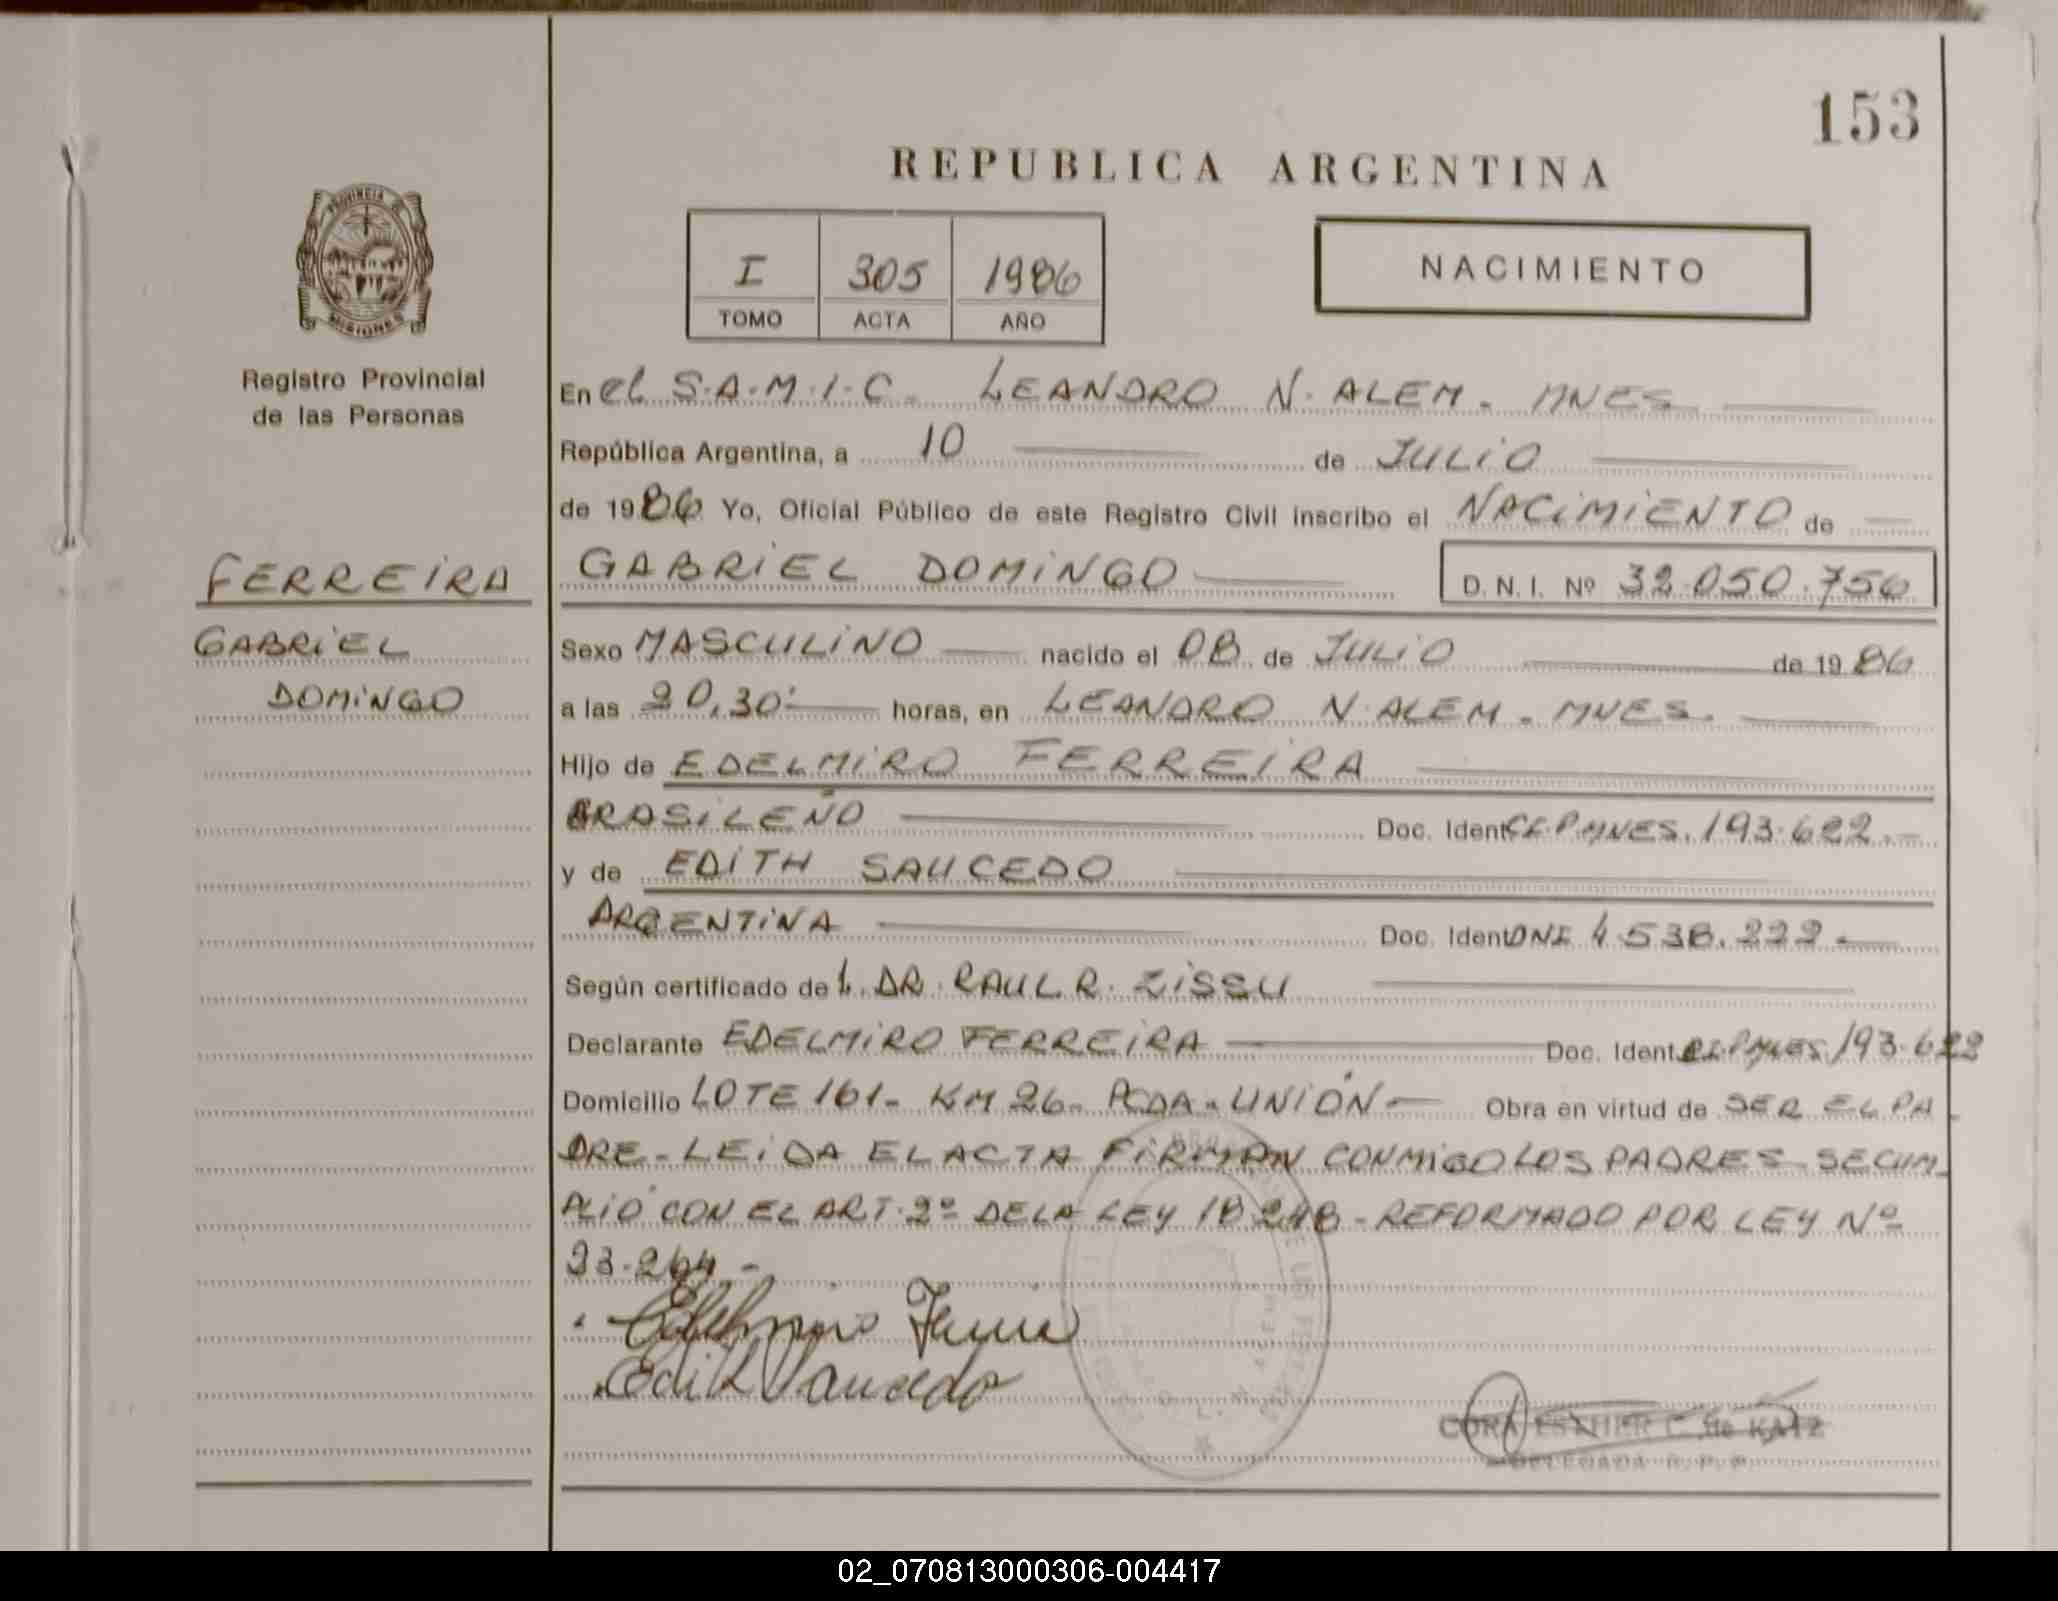 153
REPUBLICA ARGENTINA
PROVINCIA DE
MISIONES
Registro Provincial
de las Personas
I 305 1986
TOMO ACTA AÑO
NACIMIENTO
En el S.A.M.I.C. LEANDRO N. ALEM. MNES
República Argentina, a 10 de JULIO
de 1986 Yo, Oficial Público de este Registro Civil inscribo el NACIMIENTO de
FERREIRA
GABRIEL
DOMINGO
GABRIEL DOMINGO D.N.I. Nº 32.050.756
Sexo MASCULINO nacido el 08 de JULIO de 1986
a las 20,30 horas, en LEANDRO N. ALEM. MNES.
Hijo de EDELMIRO FERREIRA
BRASILEÑO Doc. Ident. CI.P.MNES. 193.622.-
y de EDITH SAUCEDO
ARGENTINA Doc. Ident. DNI 4.538.222.-
Según certificado de L. DR. RAUL R. ZISSU
Declarante EDELMIRO FERREIRA Doc. Ident. CI.P.MNES 193.622
Domicilio LOTE 161- KM 26- PCDA. UNIÓN- Obra en virtud de SER EL PA
DRE- LEIDA EL ACTA FIRMAN CONMIGO LOS PADRES SE CUM-
PLIÓ CON EL ART. 2º DE LA LEY 18248- REFORMADO POR LEY Nº
23.264.-
Edelmiro Ferreira
Edith Saucedo
CORA ESTHER C. de KATZ
DELEGADA R. P. P.
02_070813000306-004417